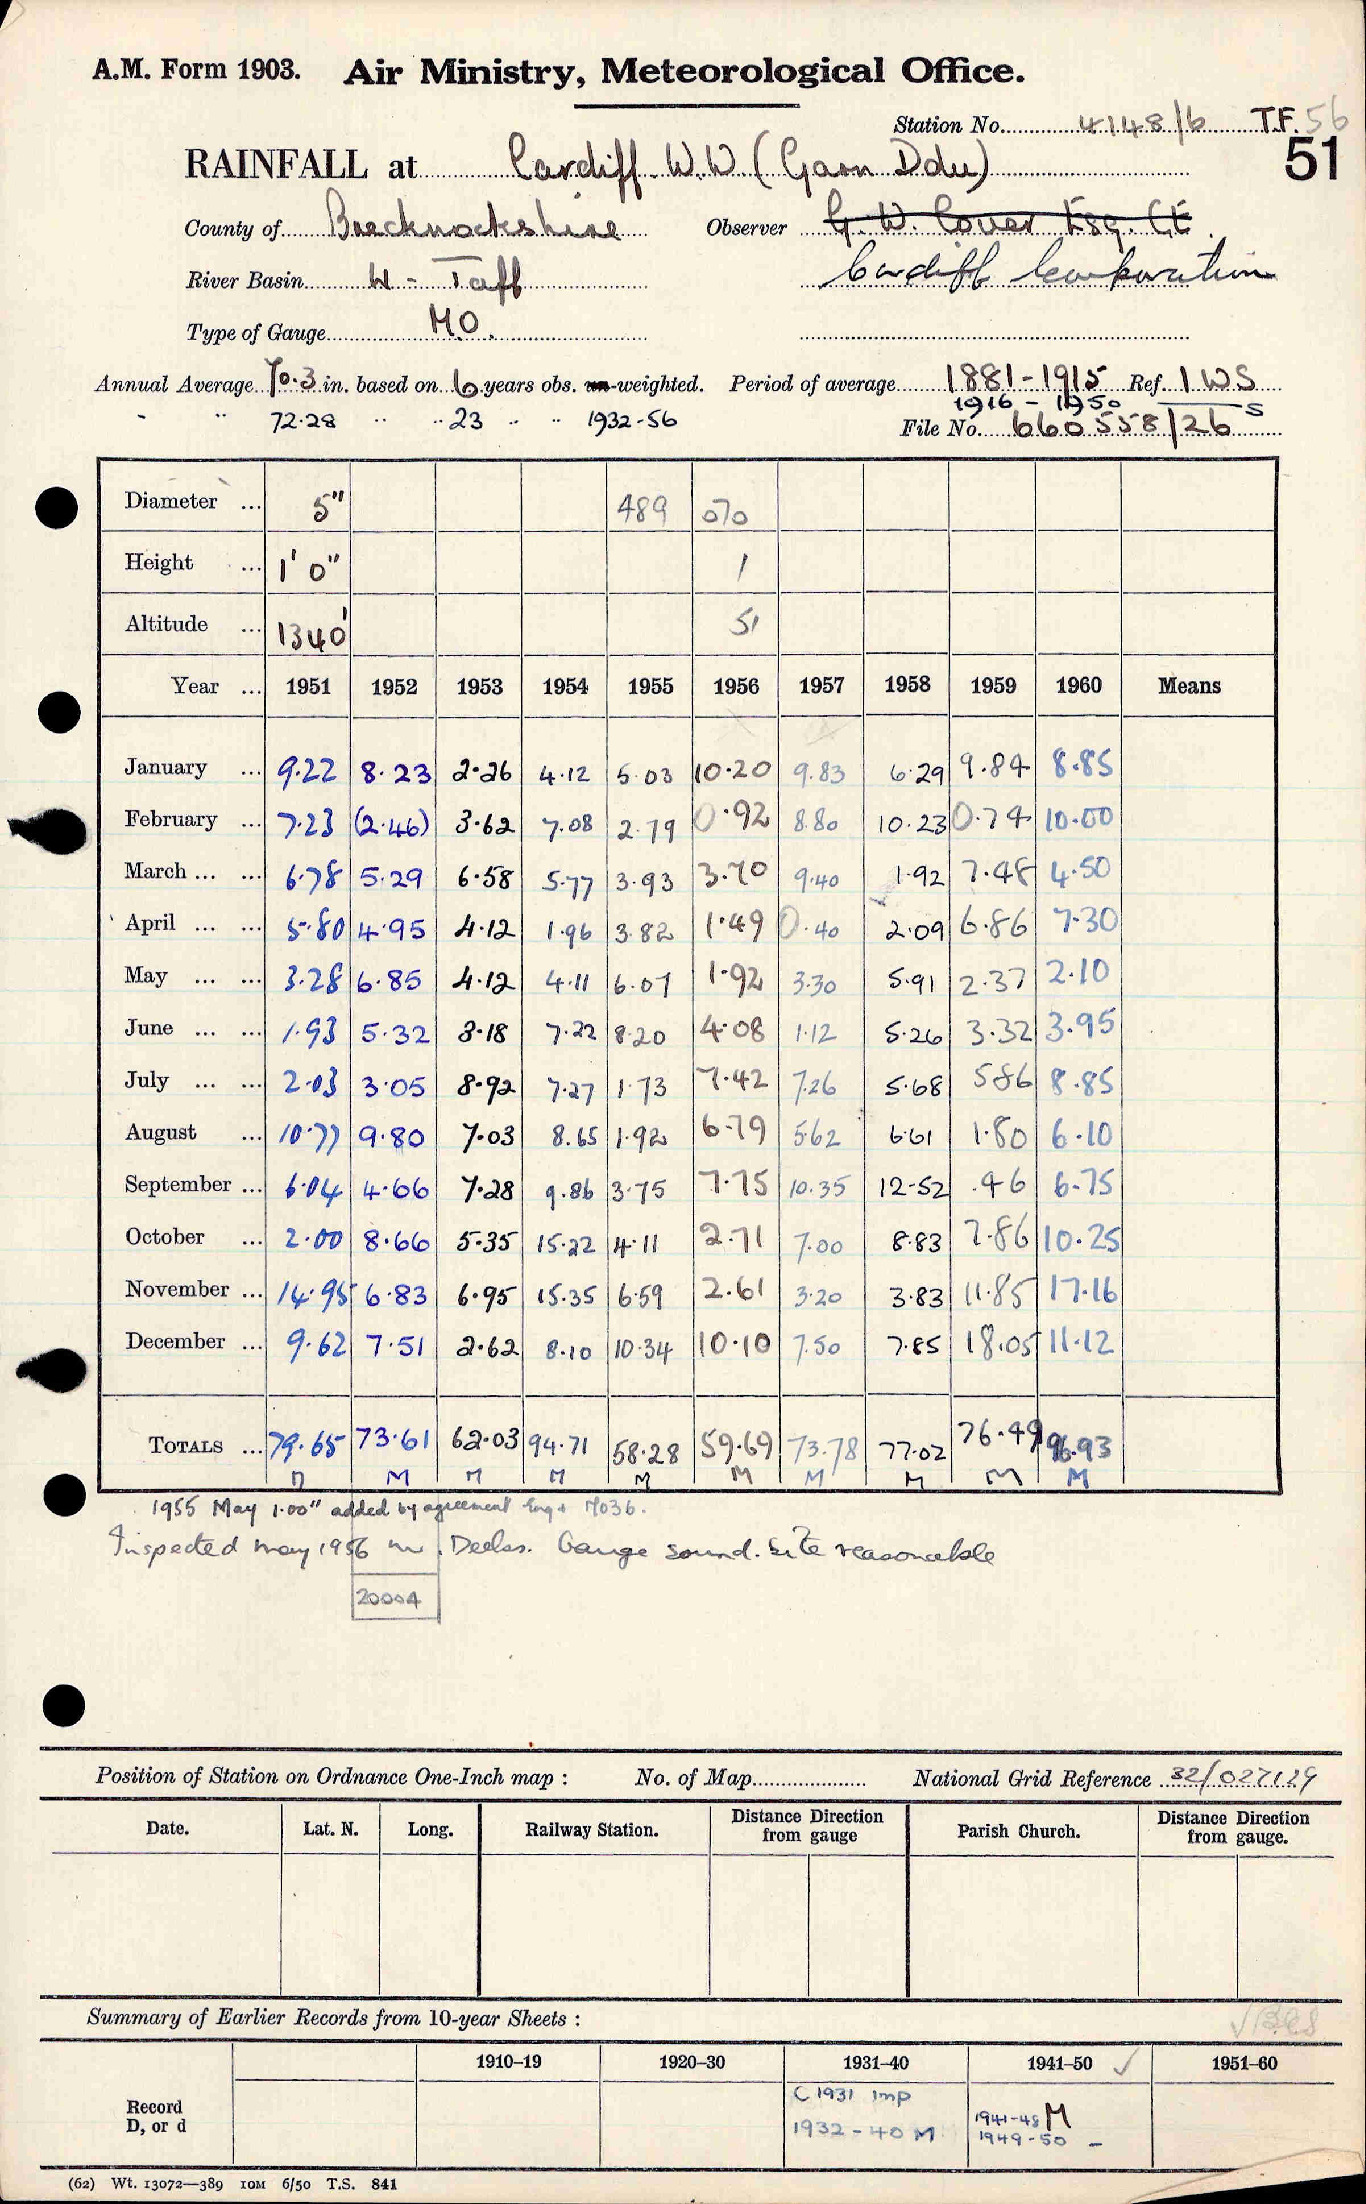 A.M. Form 1903. Air Ministry, Meteorological Office.
Station No. 4148/6 T.F. 56
51
RAINFALL at Cardiff W.W (Garn Ddu)
County of Brecknockshire Observer G. W. Cover Esq. CE.
River Basin W - Taff Cardiff Corporation
Type of Gauge M.O.
Annual Average 70.3 in. based on 6 years obs. un-weighted. Period of average 1881-1915 Ref. I W S
" " 72.28 " " 23 " " 1932-56 1916 - 1950 S
File No. 660558/26
Diameter ... 5" 489 070
Height ... 1' 0" 1
Altitude ... 1340' 51
Year ... 1951 1952 1953 1954 1955 1956 1957 1958 1959 1960 Means
January ... 9.22 8.23 2.26 4.12 5.03 10.20 9.83 6.29 9.84 8.85
February ... 7.23 (2.46) 3.62 7.08 2.79 0.92 8.80 10.23 0.74 10.00
March ... ... 6.78 5.29 6.58 5.77 3.93 3.70 9.40 1.92 7.48 4.50
April ... ... 5.80 4.95 4.12 1.96 3.82 1.49 0.40 2.09 6.86 7.30
May ... ... 3.28 6.85 4.12 4.11 6.07 1.92 3.30 5.91 2.37 2.10
June ... ... 1.93 5.32 3.18 7.22 8.20 4.08 1.12 5.26 3.32 3.95
July ... ... 2.03 3.05 8.92 7.27 1.73 7.42 7.26 5.68 586 8.85
August ... 10.77 9.80 7.03 8.65 1.92 6.79 5.62 6.61 1.80 6.10
September ... 6.04 4.66 7.28 9.86 3.75 7.75 10.35 12.52 .46 6.75
October ... 2.00 8.66 5.35 15.22 4.11 2.71 7.00 8.83 7.86 10.25
November ... 14.95 6.83 6.95 15.35 6.59 2.61 3.20 3.83 11.85 17.16
December ... 9.62 7.51 2.62 8.10 10.34 10.10 7.50 7.85 18.05 11.12
TOTALS ... 79.65 73.61 62.03 94.71 58.28 59.69 73.78 77.02 76.49 96.93
M M M M M M M M M M
1955 May 1.00" added by agreement Eng+ M036.
Inspected May 1956 Mr. Gauge sound. Site reasonable
20004
Position of Station on Ordnance One-Inch map : No. of Map National Grid Reference 32/027129
Date. Lat. N. Long. Railway Station. Distance Direction from gauge Parish Church. Distance Direction from gauge.
Summary of Earlier Records from 10-year Sheets :
1910–19 1920–30 1931–40 1941–50 ✓ 1951–60
Record D, or d
C 1931 Imp
1932-40 M
1941-48 M
1949-50 -
(62) Wt. 13072—389 10M 6/50 T.S. 841